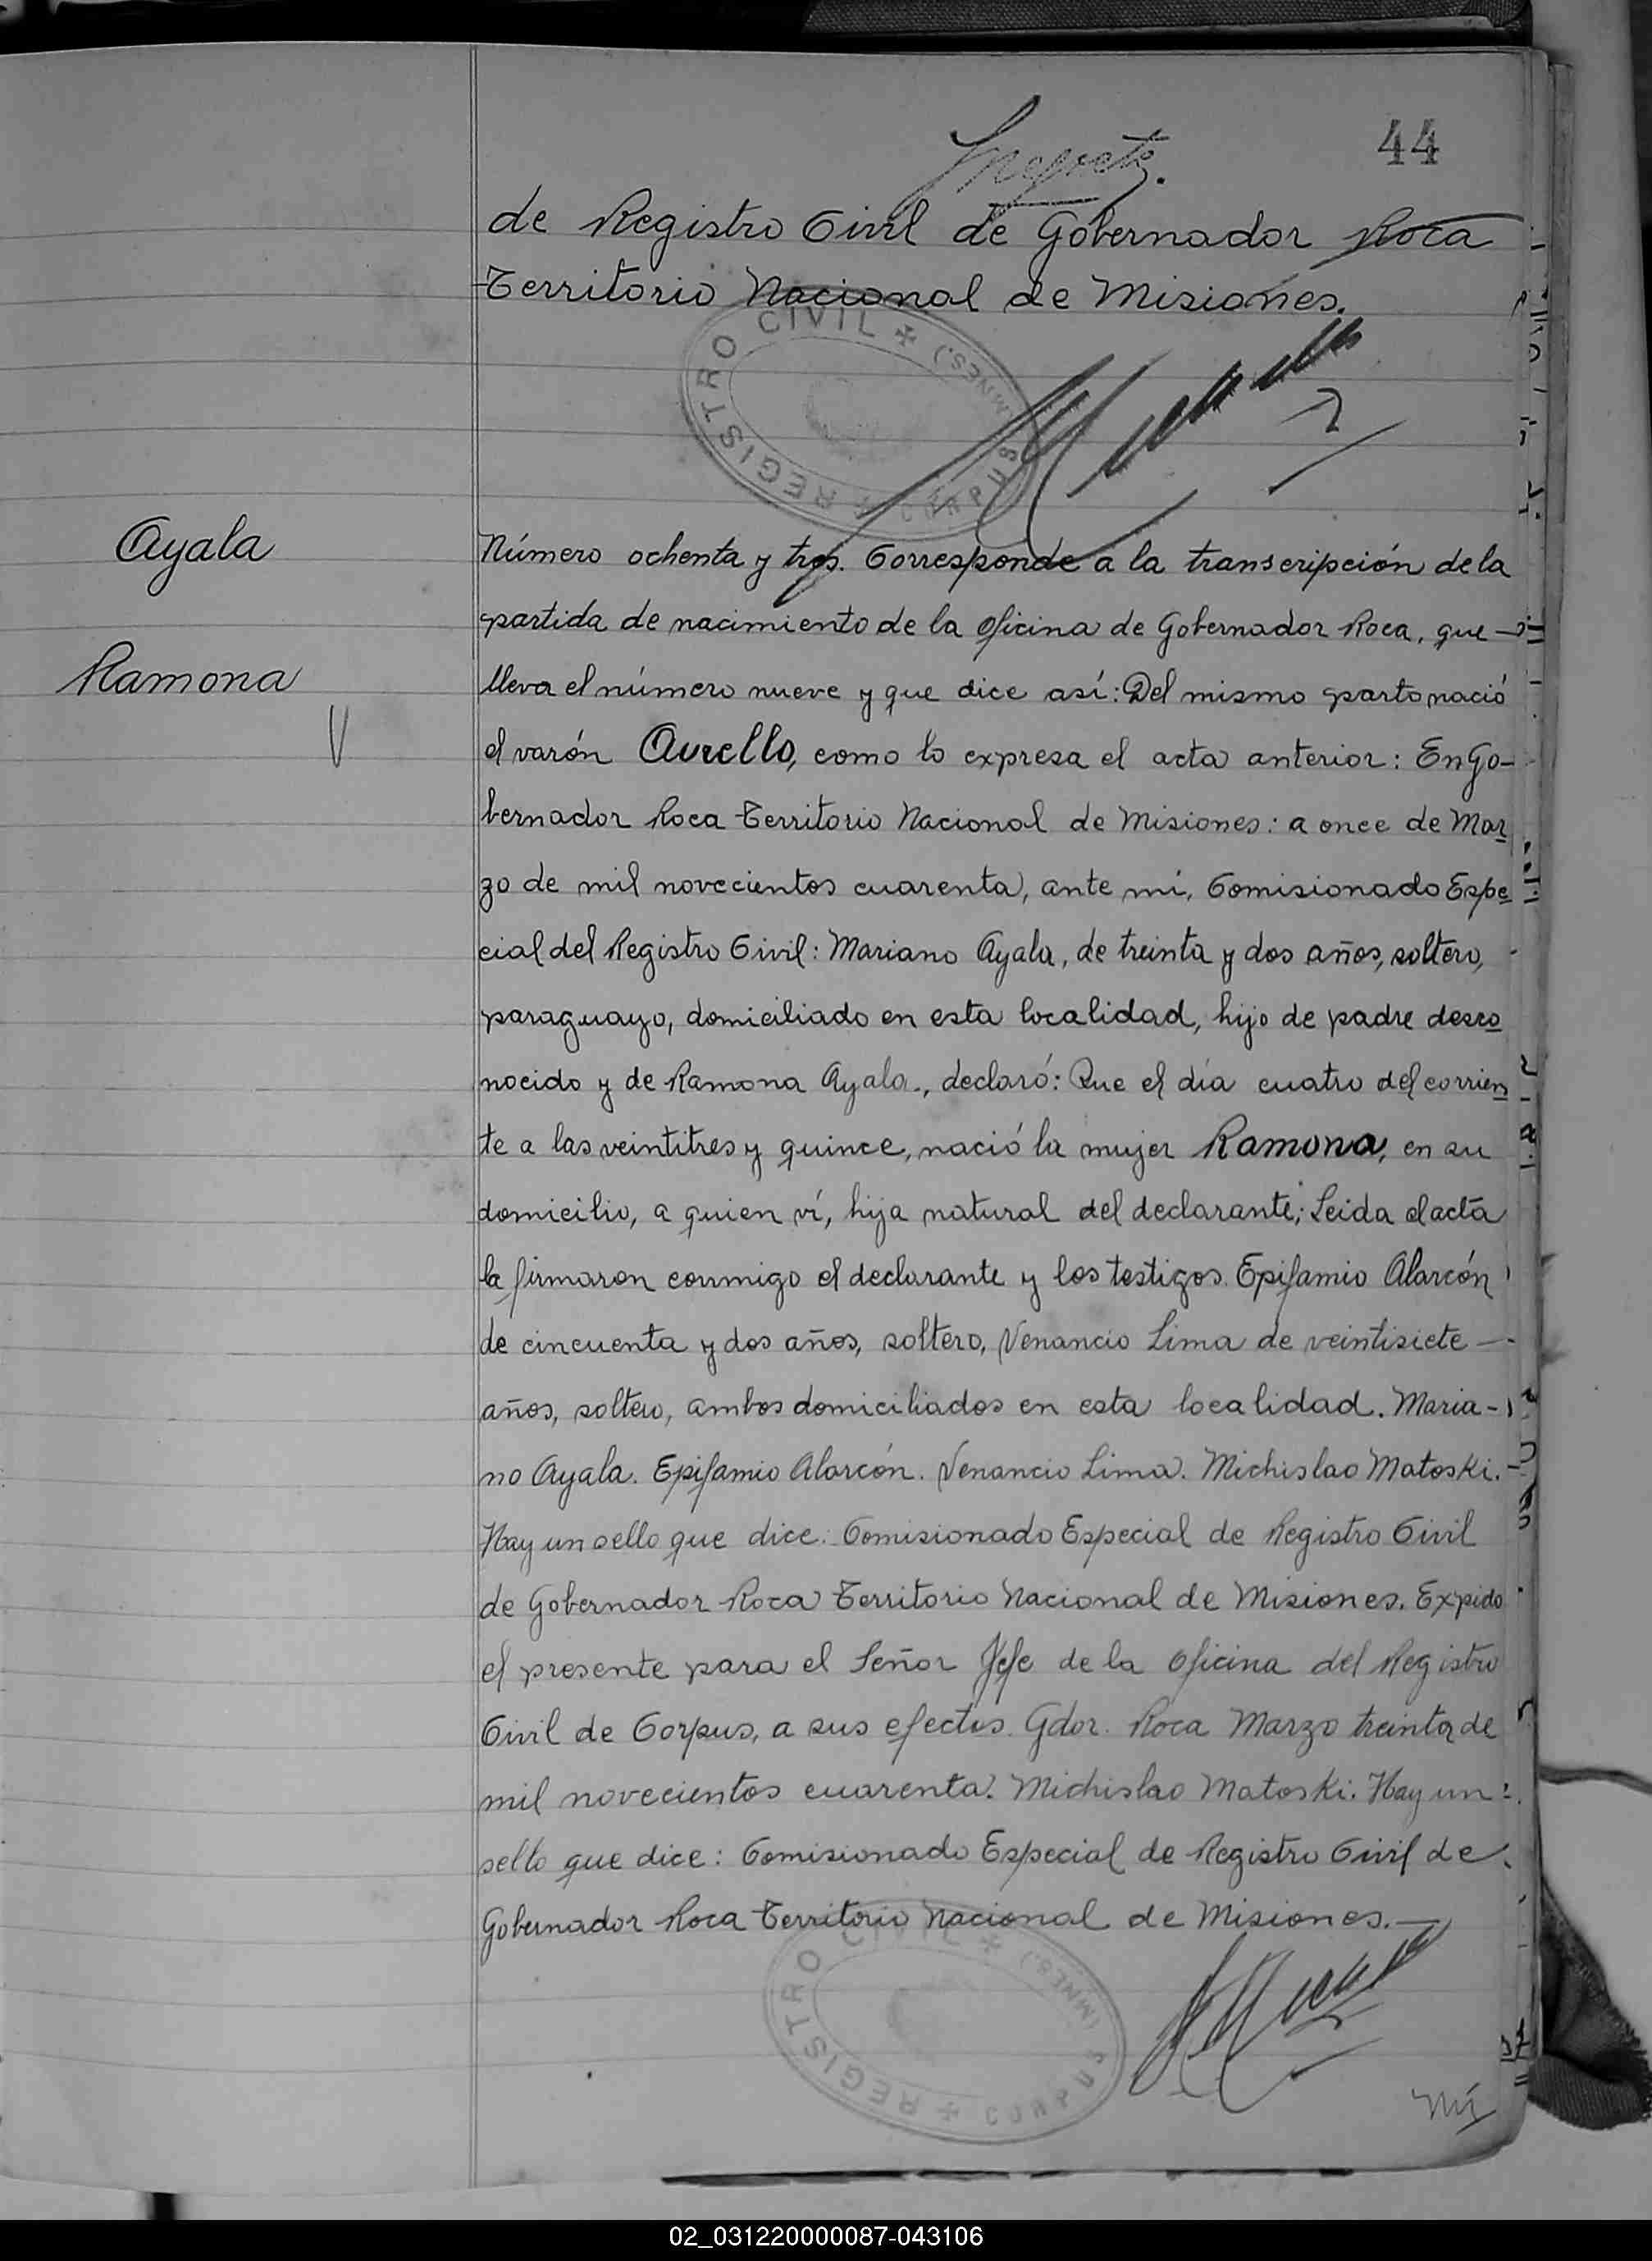 44
de Registro Civil de Gobernador Roca
Territorio Nacional de Misiones.
REGISTRO CIVIL CORPUS (MNES.)
Ayala
Ramona
Número ochenta y tres. Corresponde a la transcripción de la
partida de nacimiento de la oficina de Gobernador Roca, que
lleva el número nueve y que dice así: Del mismo parto nació
el varón Aurello, como lo expresa el acta anterior: En Go-
bernador Roca Territorio Nacional de Misiones: a once de Mar
zo de mil novecientos cuarenta, ante mí, Comisionado Espe
cial del Registro Civil: Mariano Ayala, de treinta y dos años, soltero,
paraguayo, domiciliado en esta localidad, hijo de padre desco
nocido y de Ramona Ayala., declaró: Que el día cuatro del corrien
te a las veintitres y quince, nació la mujer Ramona, en su
domicilio, a quien ví, hija natural del declarante; Leida el acta
la firmaron conmigo el declarante y los testigos Epifamio Alarcón
de cincuenta y dos años, soltero, Venancio Lima de veintisiete
años, soltero, ambos domiciliados en esta localidad. Maria-
no Ayala. Epifamio Alarcón. Venancio Lima. Michislao Matoski.
Hay un sello que dice: Comisionado Especial de Registro Civil
de Gobernador Roca Territorio Nacional de Misiones. Expido
el presente para el Señor Jefe de la Oficina del Registro
Civil de Corpus, a sus efectos. Gdor. Roca Marzo treinta de
mil novecientos cuarenta. Michislao Matoski. Hay un
sello que dice: Comisionado Especial de Registro Civil de
Gobernador Roca Territorio Nacional de Misiones.
REGISTRO CIVIL CORPUS (MNES.)
02_031220000087-043106